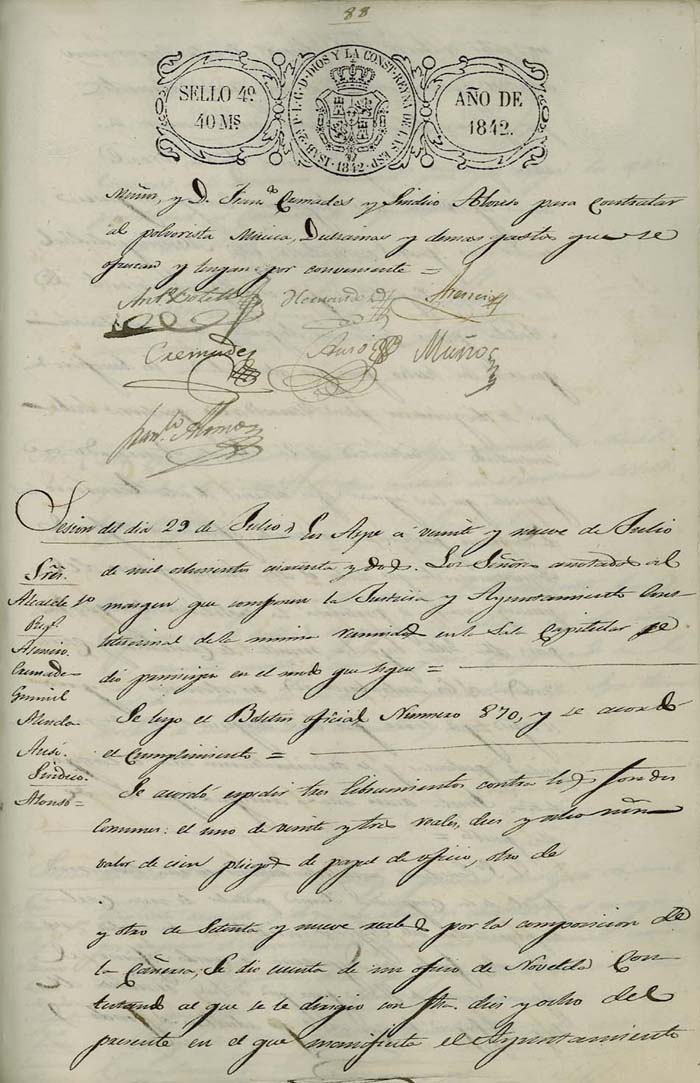 88
SELLO 4º
40 Ms
ISAB. 2ª P. L. G. D. DIOS Y LA CONST. REYNA DE LAS ESP.
1842
AÑO DE
1842.
Muñoz, y D. Franco Cremades y Sindico Alonso para contratar
al polvorista Musica, Dulzainas y demas gastos que se
ofrezcan y tengan por conveniente =
Hernandez
Asencio
Cremades
Muñoz
Alonso
Sesion del dia 29 de Julio
En Aspe á veinte y nueve de Julio
de mil ochocientos cuarenta y dos. Los Señores anotados al
margen que componen la Justicia y Ayuntamiento Cons-
titucional de la misma reunidos en la Sala Capitular se
dió principio en el modo que sigue =
Sres.
Alcalde 1º
Asencio.
Cremades
Sindico.
Alonso =
Se leyo el Boletin oficial Numero 870, y se acordó
el cumplimiento =
Se acordó expedir tres libramientos contra los fondos
comunes: el uno de veinte y tres reales, dies y ocho mrs
valor de cien pliegos de papel de oficio, otro de
y otro de Setenta y nueve reales por la composicion de
la Cañeria, Se dio cuenta de un oficio de Novelda Con-
testando al que se le dirigio con fha. dies y ocho del
presente en el que manifiesta el Ayuntamiento